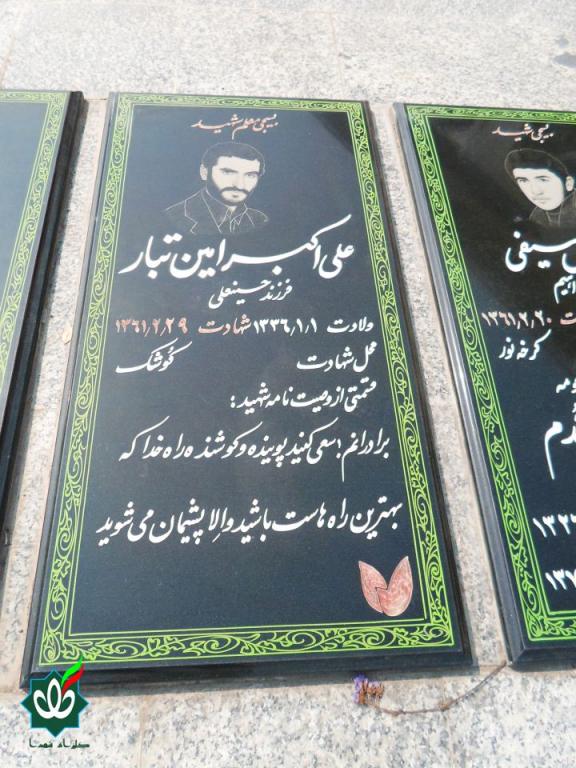 بسیجی معلم شهید
علی اکبر امین تبار
فرزند حسینعلی
ولادت ۱۳۳۶/۱/۱ شهادت ۱۳۶۱/۲/۲۹
محل شهادت کوشک
قسمتی از وصیت نامه شهید :
برادرانم ؛ سعی کنید پوینده و کوشنده راه خدا که
بهترین راه هاست باشید والا پشیمان می شوید
بسیجی شهید
سیفی
۱۳۶۱/۲/۲۰
کرخه نور